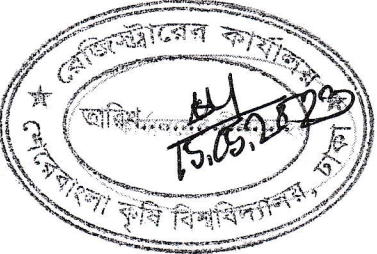 রেজিস্ট্রারের কার্যালয়
তারিখ
15.05.2023
শেরেবাংলা কৃষি বিশ্ববিদ্যালয়, ঢাকা